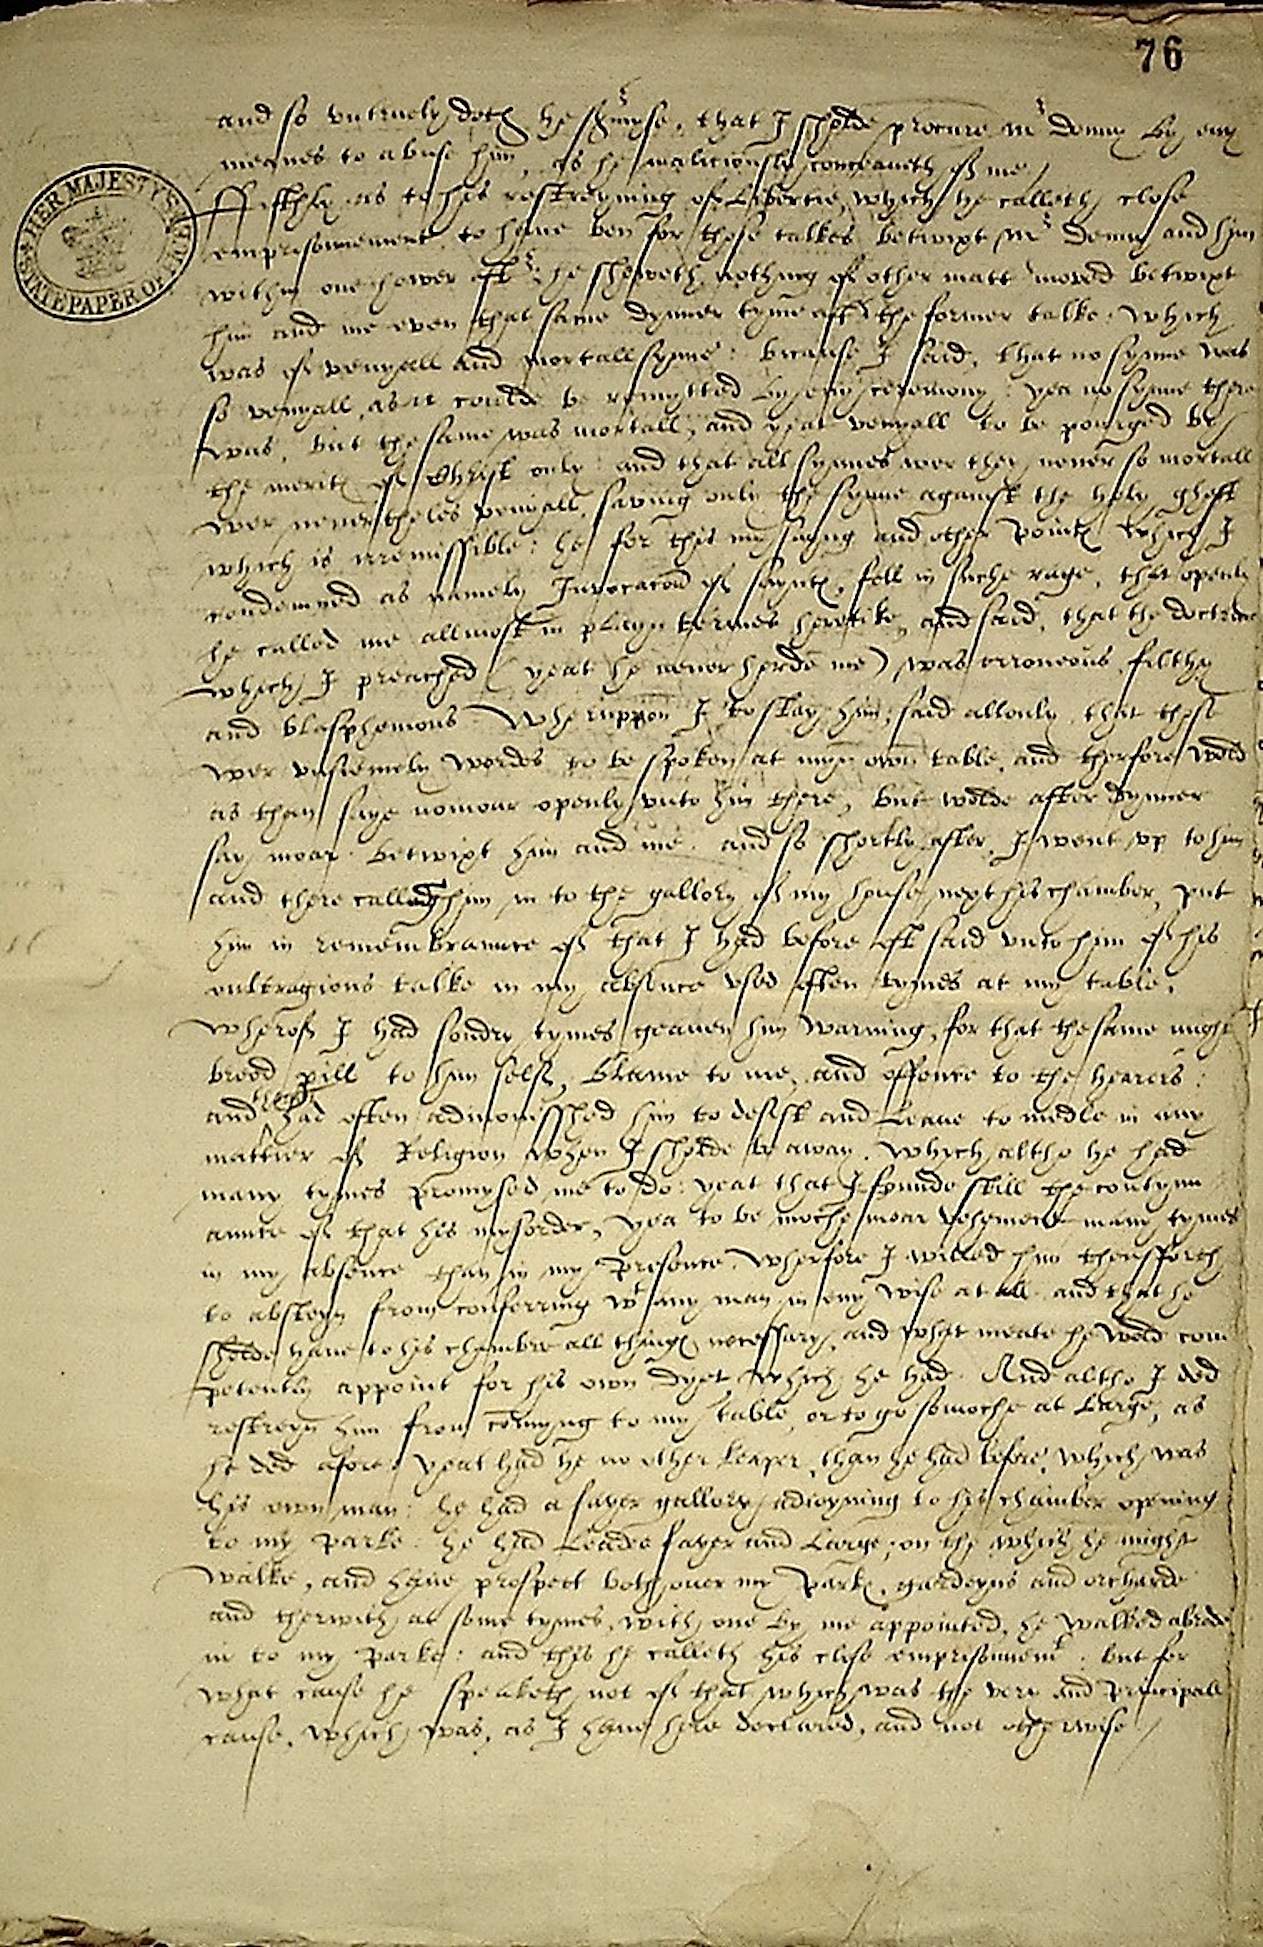 76
HER MAJESTY'S STATE PAPER OFFICE
and so vntruely doth he surmyse, that I sholde procure Mr Denny by eny
meanes to abuse him, as he maliciously conceaueth of me
Fifthly as to his restreyning of Libertie, which he calleth close
emprisonnement, to haue ben for those talkes betwixt Mr Denny and him
within one hower aftr: he sheweth nothing of other mattr moved betwixt
him and me even that same dynner tyme aftr the former talke: which
was of venyall and mortall synne: bicause I said, that no synne was
so venyall, as it coulde be remytted by eny ceremony: yea no synne there
was, but the same was mortall, and yeat venyall to be pourged by
the merites of Christ only: and that all synnes wer they never so mortall
wer nevertheles venyall, saving only the synne against the holy ghost
which is irremissible: he for this my saying and other pointes which I
condemned as namely Invocacion of sayntes, fell in suche rage, that openly
he called me allmost in playn termes heretike, and said, that the doctrine
which I preached (yeat he never herde me) was erroneous, filthy
and blasphemous. Wheruppon I to stay him, said allonly that those
wer vnsemely wordes to be spoken at myn own table, and therfore wold
as than saye nomoar openly vnto him there, but wolde after dynner
say moar betwixt him and me. and so shortly after I went vp to him
and there calling him in to the gallory of my house next his chamber, put
him in remembraunce of that I had before oft said vnto him of his
oultragious talke in my absence vsed often tymes at my table.
Wherof I had sondry tymes geauen him warning, for that the same might
breed pill to him self, blame to me, and offence to the hearers:
and had often admonisshed him to desist and leaue to medle in any
mattier of Religion when I sholde be away. Which altho he had
many tymes promysed me to do: yeat that I founde still the contynu
aunce of that his mysorder, yea to be moche moar vehement many tymes
in my absence than in my presence. Wherfore I willed him thensforth
to absteyn from conferring wt any man in eny wise at all. and that he
sholde haue to his chambre all thinges necessary, and what meate he wold com
petently appoint for his own dyet, which he had. And altho I ded
restreyn him from comyng to my table, or to go somoche at large, as
he ded afore: yeat had he no other keaper, than he had before, which was
his own man: he had a fayer gallory adioyning to his chamber opening
to my parke: he had leades fayer and large, on the which he might
walke, and haue prospect both ouer my parkes, gardeyns and orcharde
and therwith at some tymes, with one by me appointed, he walked abrode
in to my parke: and this he calleth his close emprisonment: but for
what cause he speaketh not of that which was the very and principall
cause, which was, as I haue here declared, and not otherwise